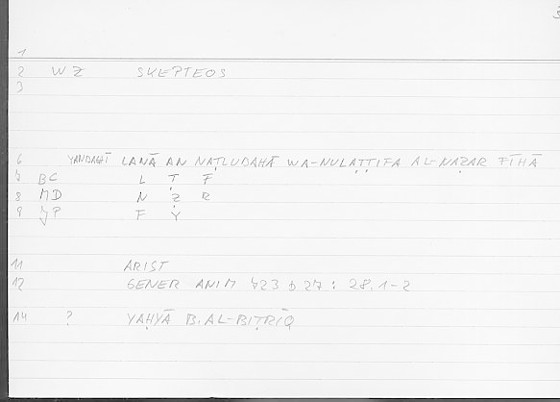 1
2 WZ SKEPTEOS
3
6 YANBAĠĪ LANĀ AN NAṬLUBAHĀ WA-NULAṬṬIFA AL-NAẒAR FĪHĀ
7 BC L Ṭ F
8 MD N Ẓ R
9 JP F Y
11 ARIST
12 GENER ANIM 723 b 27 : 28.1-2
14 ? YAḤYĀ B. AL-BIṬRĪQ